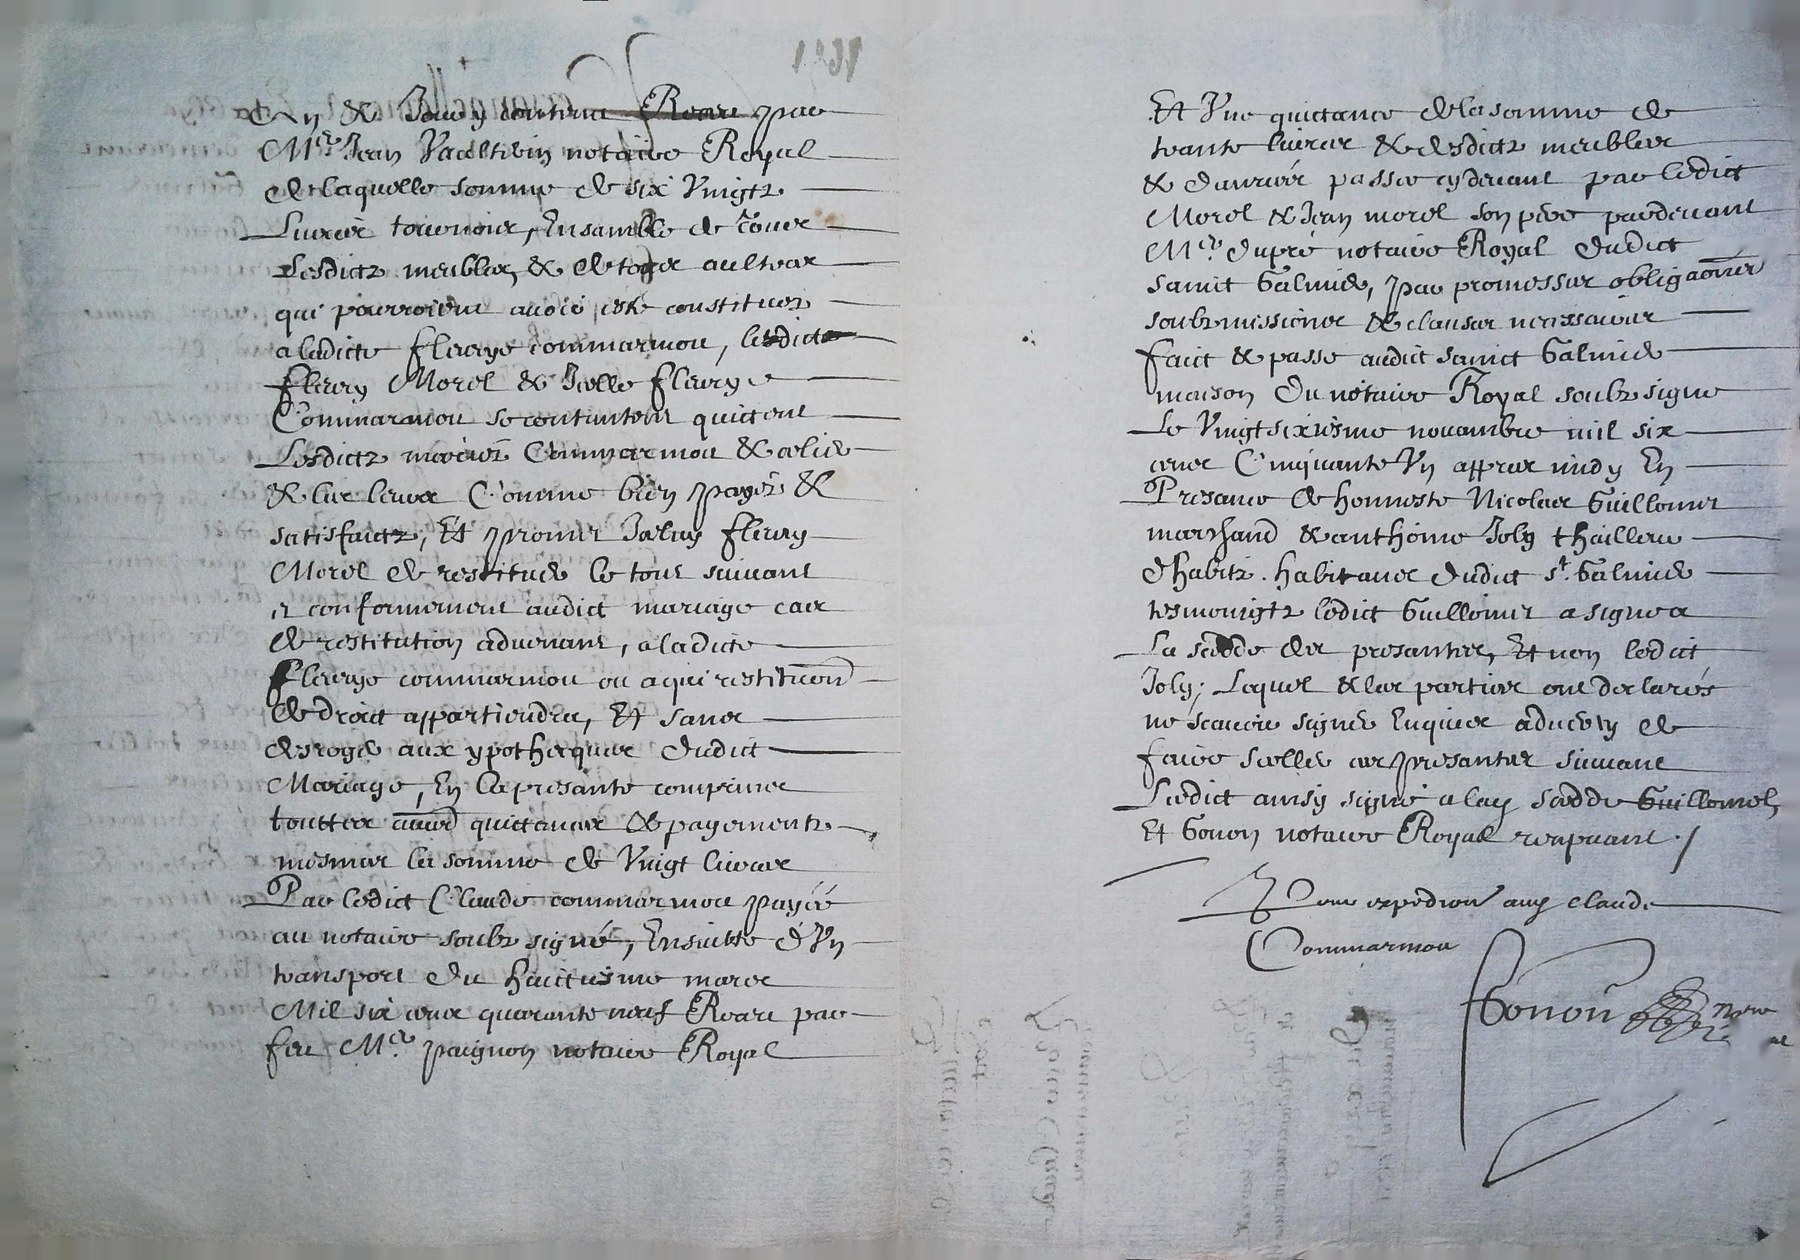 & Jouy contenu Receu par
Mre. Jean Vaultrin notaire Royal
de laquelle somme de six Vingtz
Livres tournois, Ensamble de tous
Lesdictz meubles, & de tous aultres
qui pourroient avoir esté constitues
a ladicte fleurye commarmou, lesdictz
fleury Morel & Icelle fleurye
Commarmou se contentent quittent
Lesdictz mariés Commarmou &
& les leurs Comme bien payés &
satisfaictz, Et promet Icelluy fleury
Morel de restitued le tout suivant
& conformement audict mariage cas
de restitution advenant, a ladicte
fleurye commarmou ou a qui restituon
de droict appartiendra, Et sans
desroged aux ypothecques dudict
Mariage, En la presante comprises
touttes aultres quittances & payements
mesmes la somme de Vingt livres
Par ledict Claude commarmou payée
au notaire soubzsigné, Ensuitte d'Un
transport du huictiesme mars
Mil six cens quarante neuf Receu par
feu Mre. paignon notaire Royal
Et Une quictance de la somme de
trante livres & desdictz meubles
& danrées passée cydevant par ledict
Morel & Jean morel son pere pardevant
Mre. dupré notaire Royal dudict
sainct Galmied, par promesses obligaons
soubzmissions & clauses necessaires
faict & passé audict sainct Galmied
maison du notaire Royal soubzsigné
Le Vingtsixiesme novambre mil six
cens Cinquante Un appres midy En
Presance de honneste Nicolas Guillomet
marchand & anthoine Joly thailleur
d'habitz. habitans dudict st. Galmied
tesmoingtz ledict Guillomet a signé a
La scedde des presantes, Et non ledict
Joly; Lequel & les parties ont declarés
ne scavoir signed Enquis advery de
faire scelled ces presantes suivant
Ledict ainsy signé a lad scedde Guillomet,
Et Gonon notaire Royal recepvant ./
Pour expedition aud claude
Commarmou
Gonon nore